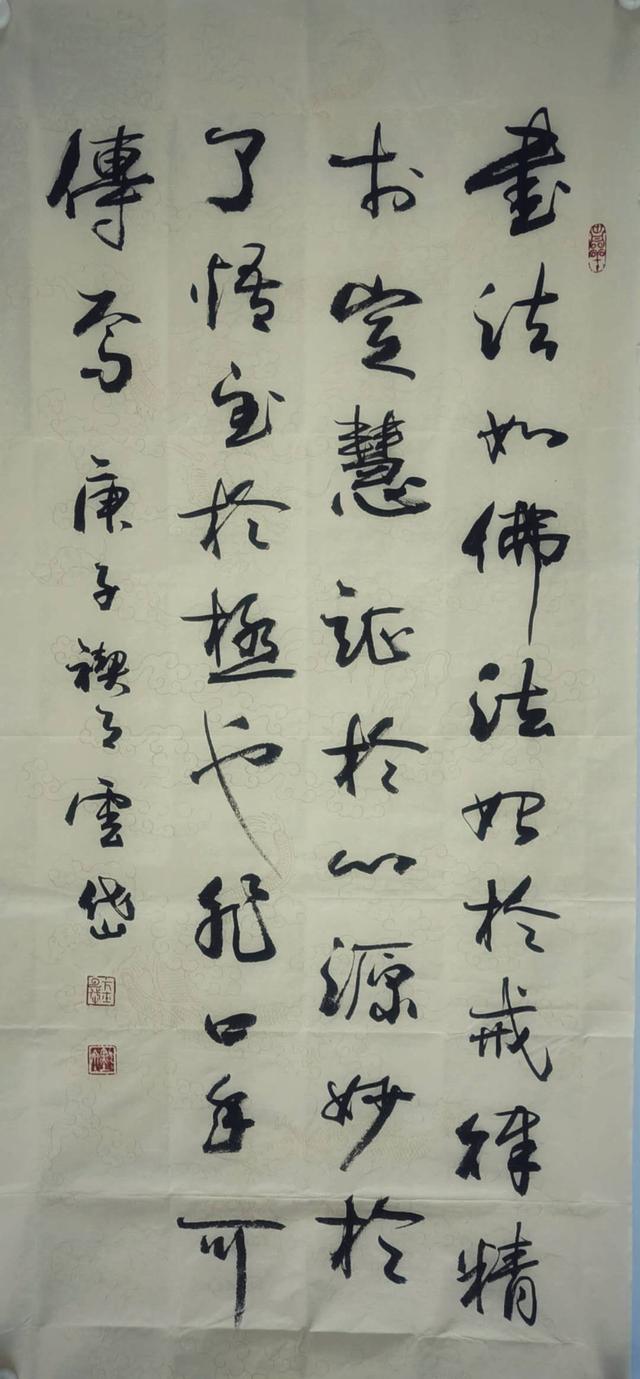 書法如佛法始於戒律精
於定慧証於心源妙於
了悟至於極也非口手可
傳焉 庚子禊月雲岱